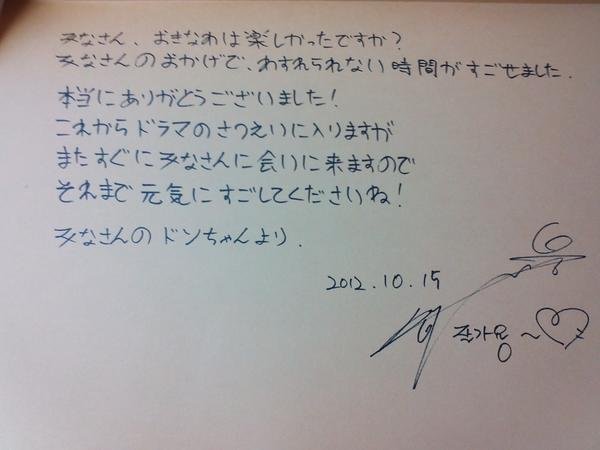 みなさん、おきなわは楽しかったですか?
みなさんのおかげで、わすれられない時間がすごせました.
本当にありがとうございました!
これからドラマのさつえいに入りますが
またすぐにみなさんに会いに来ますので
それまで元気にすごしてくださいね!
みなさんのドンちゃんより.
2012.10.15
잔가용~♡